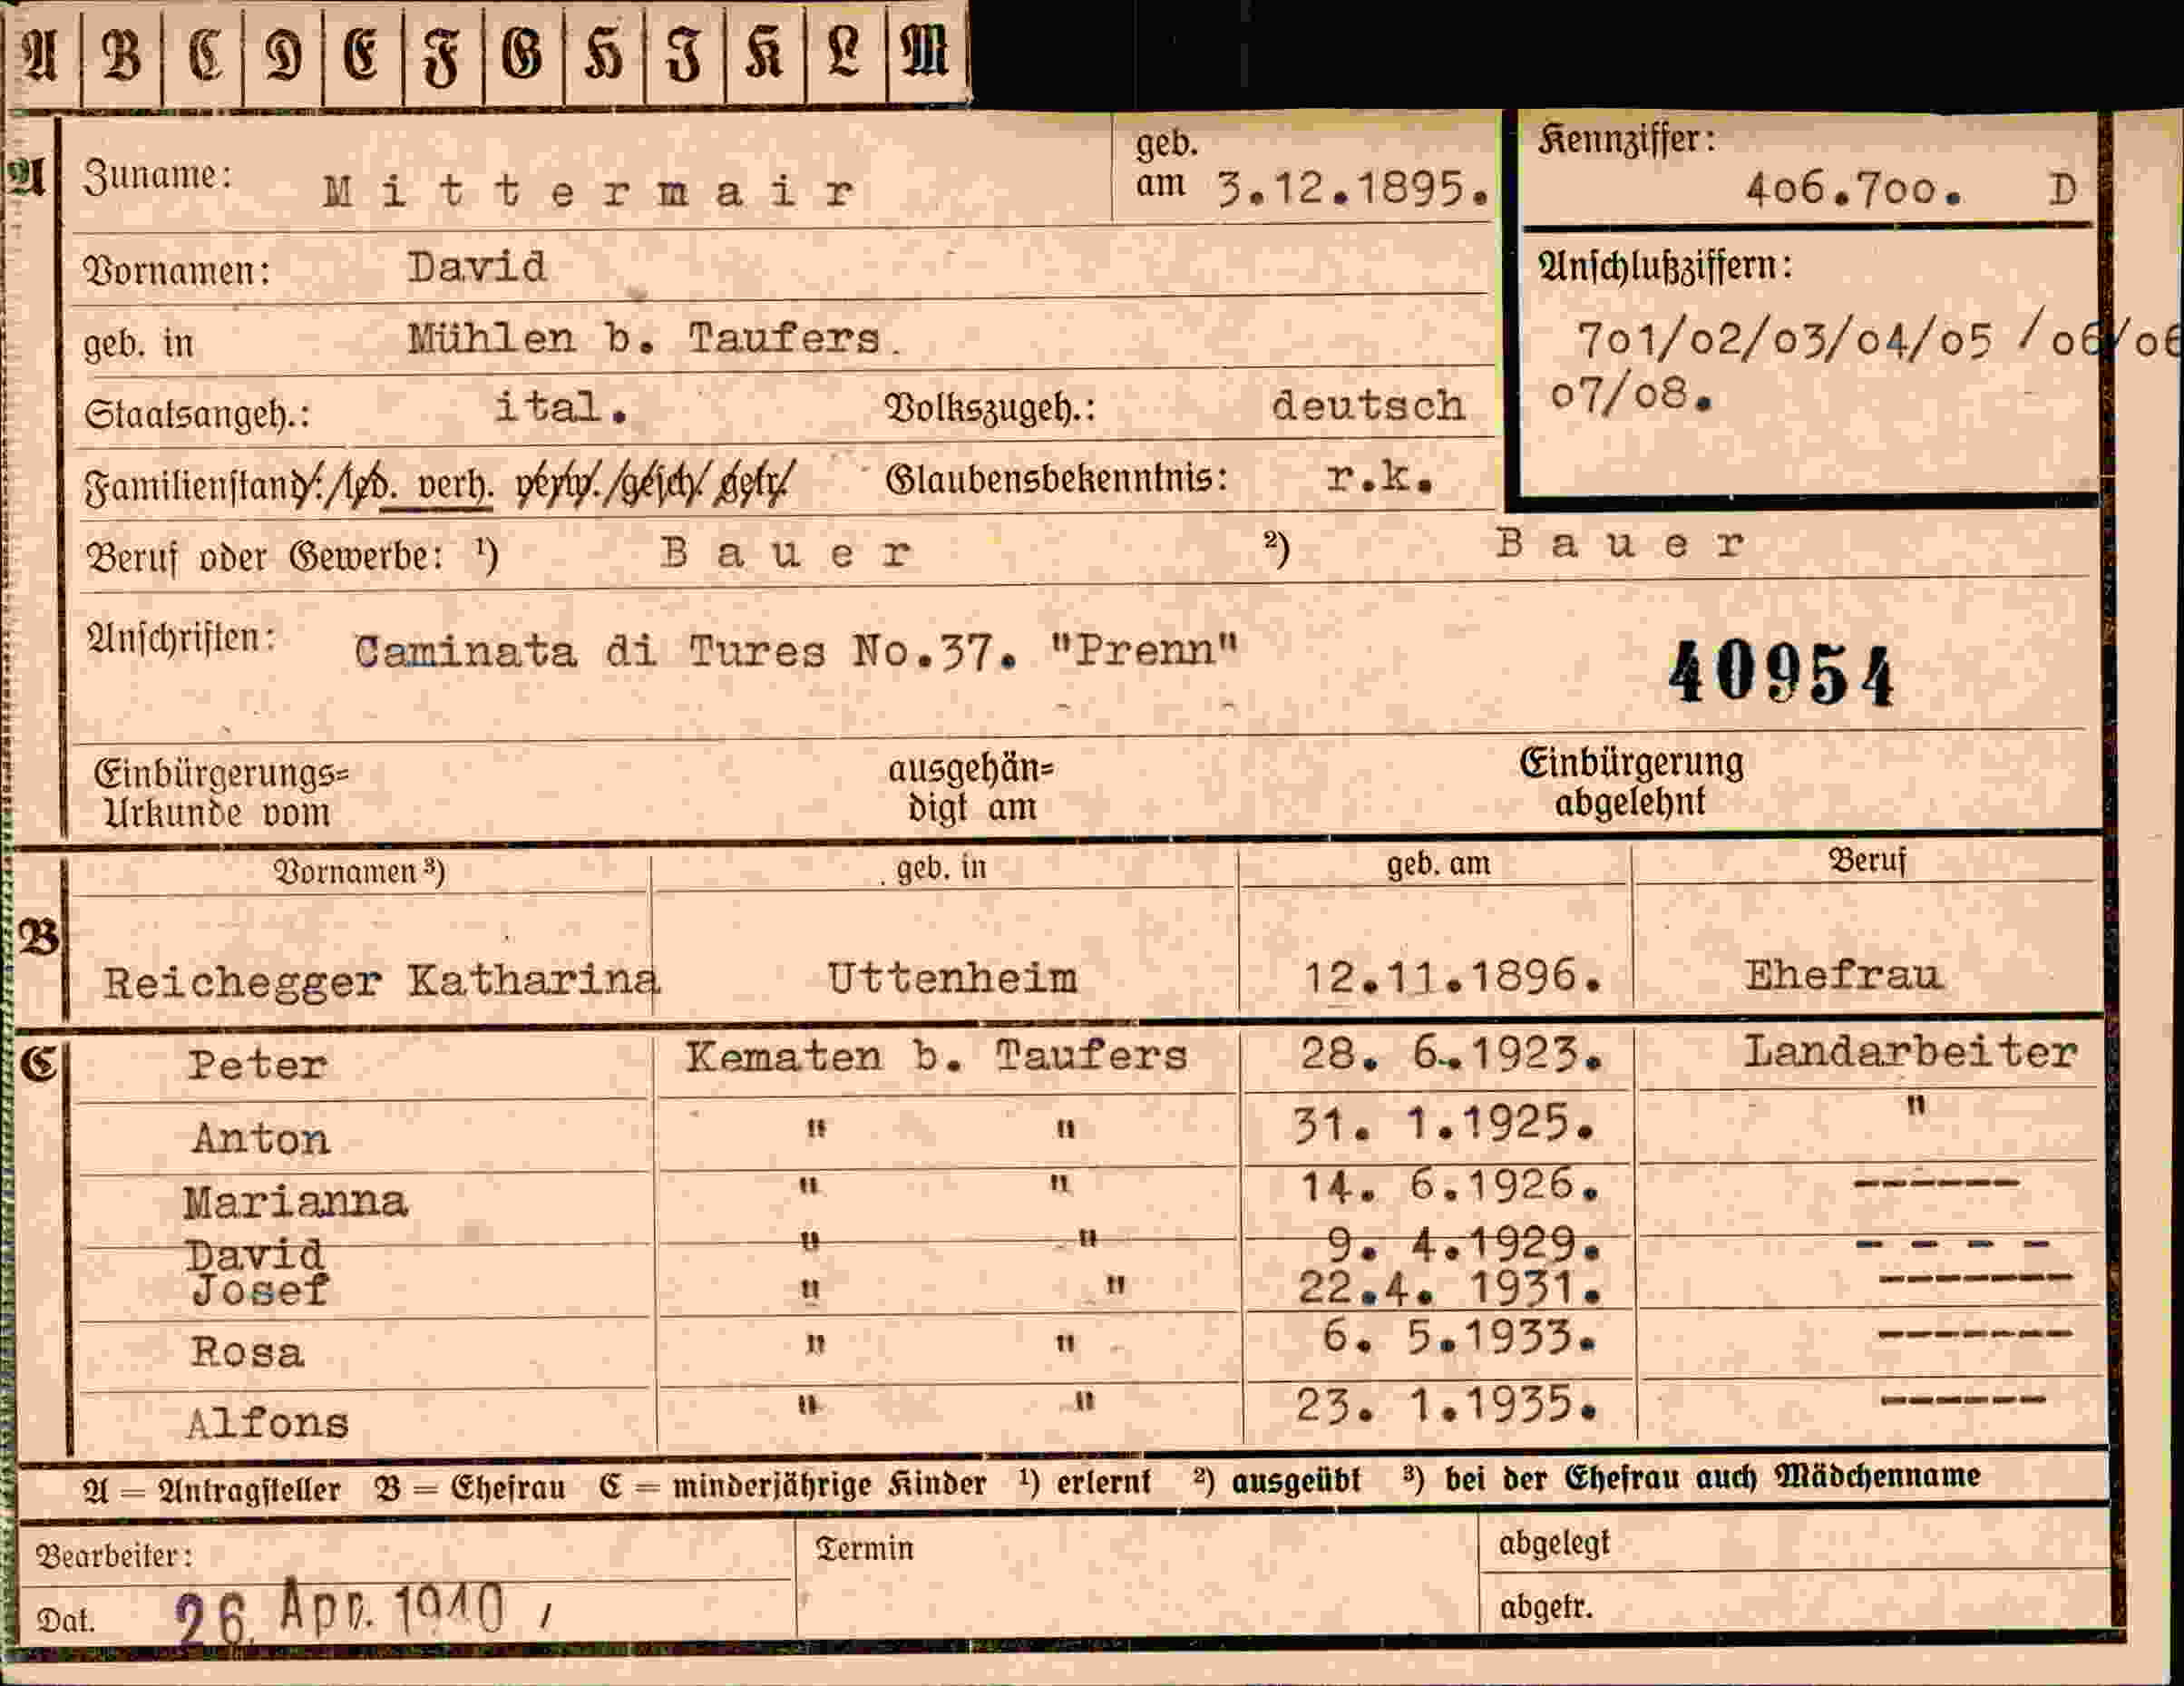 A B C D E F G H I K L M
A Zuname: Mittermair geb. am 3.12.1895. Kennziffer: 406.700. D
Vornamen: David Anschlußziffern:
geb. in Mühlen b. Taufers. 701/02/03/04/05 /06/06
07/08.
Staatsangeh.: ital. Volkszugeh.: deutsch
Familienstand: led. verh. verw. gesch. getr. Glaubensbekenntnis: r.k.
Beruf oder Gewerbe: ¹) Bauer ²) Bauer
Anschriften: Caminata di Tures No.37. "Prenn" 40954
Einbürgerungs= ausgehän= Einbürgerung
Urkunde vom digt am abgelehnt
Vornamen ³) geb. in geb. am Beruf
B
Reichegger Katharina Uttenheim 12.11.1896. Ehefrau
C Peter Kematen b. Taufers 28. 6.1923. Landarbeiter
Anton " " 31. 1.1925. "
Marianna " " 14. 6.1926. ------
David " " 9. 4.1929. - - - -
Josef " " 22.4. 1931. -------
Rosa " " 6. 5.1933. -------
Alfons " " 23. 1.1935. ------
A = Antragsteller B = Ehefrau C = minderjährige Kinder ¹) erlernt ²) ausgeübt ³) bei der Ehefrau auch Mädchenname
Bearbeiter: Termin abgelegt
Dat. 26. Apr. 1940 abgetr.